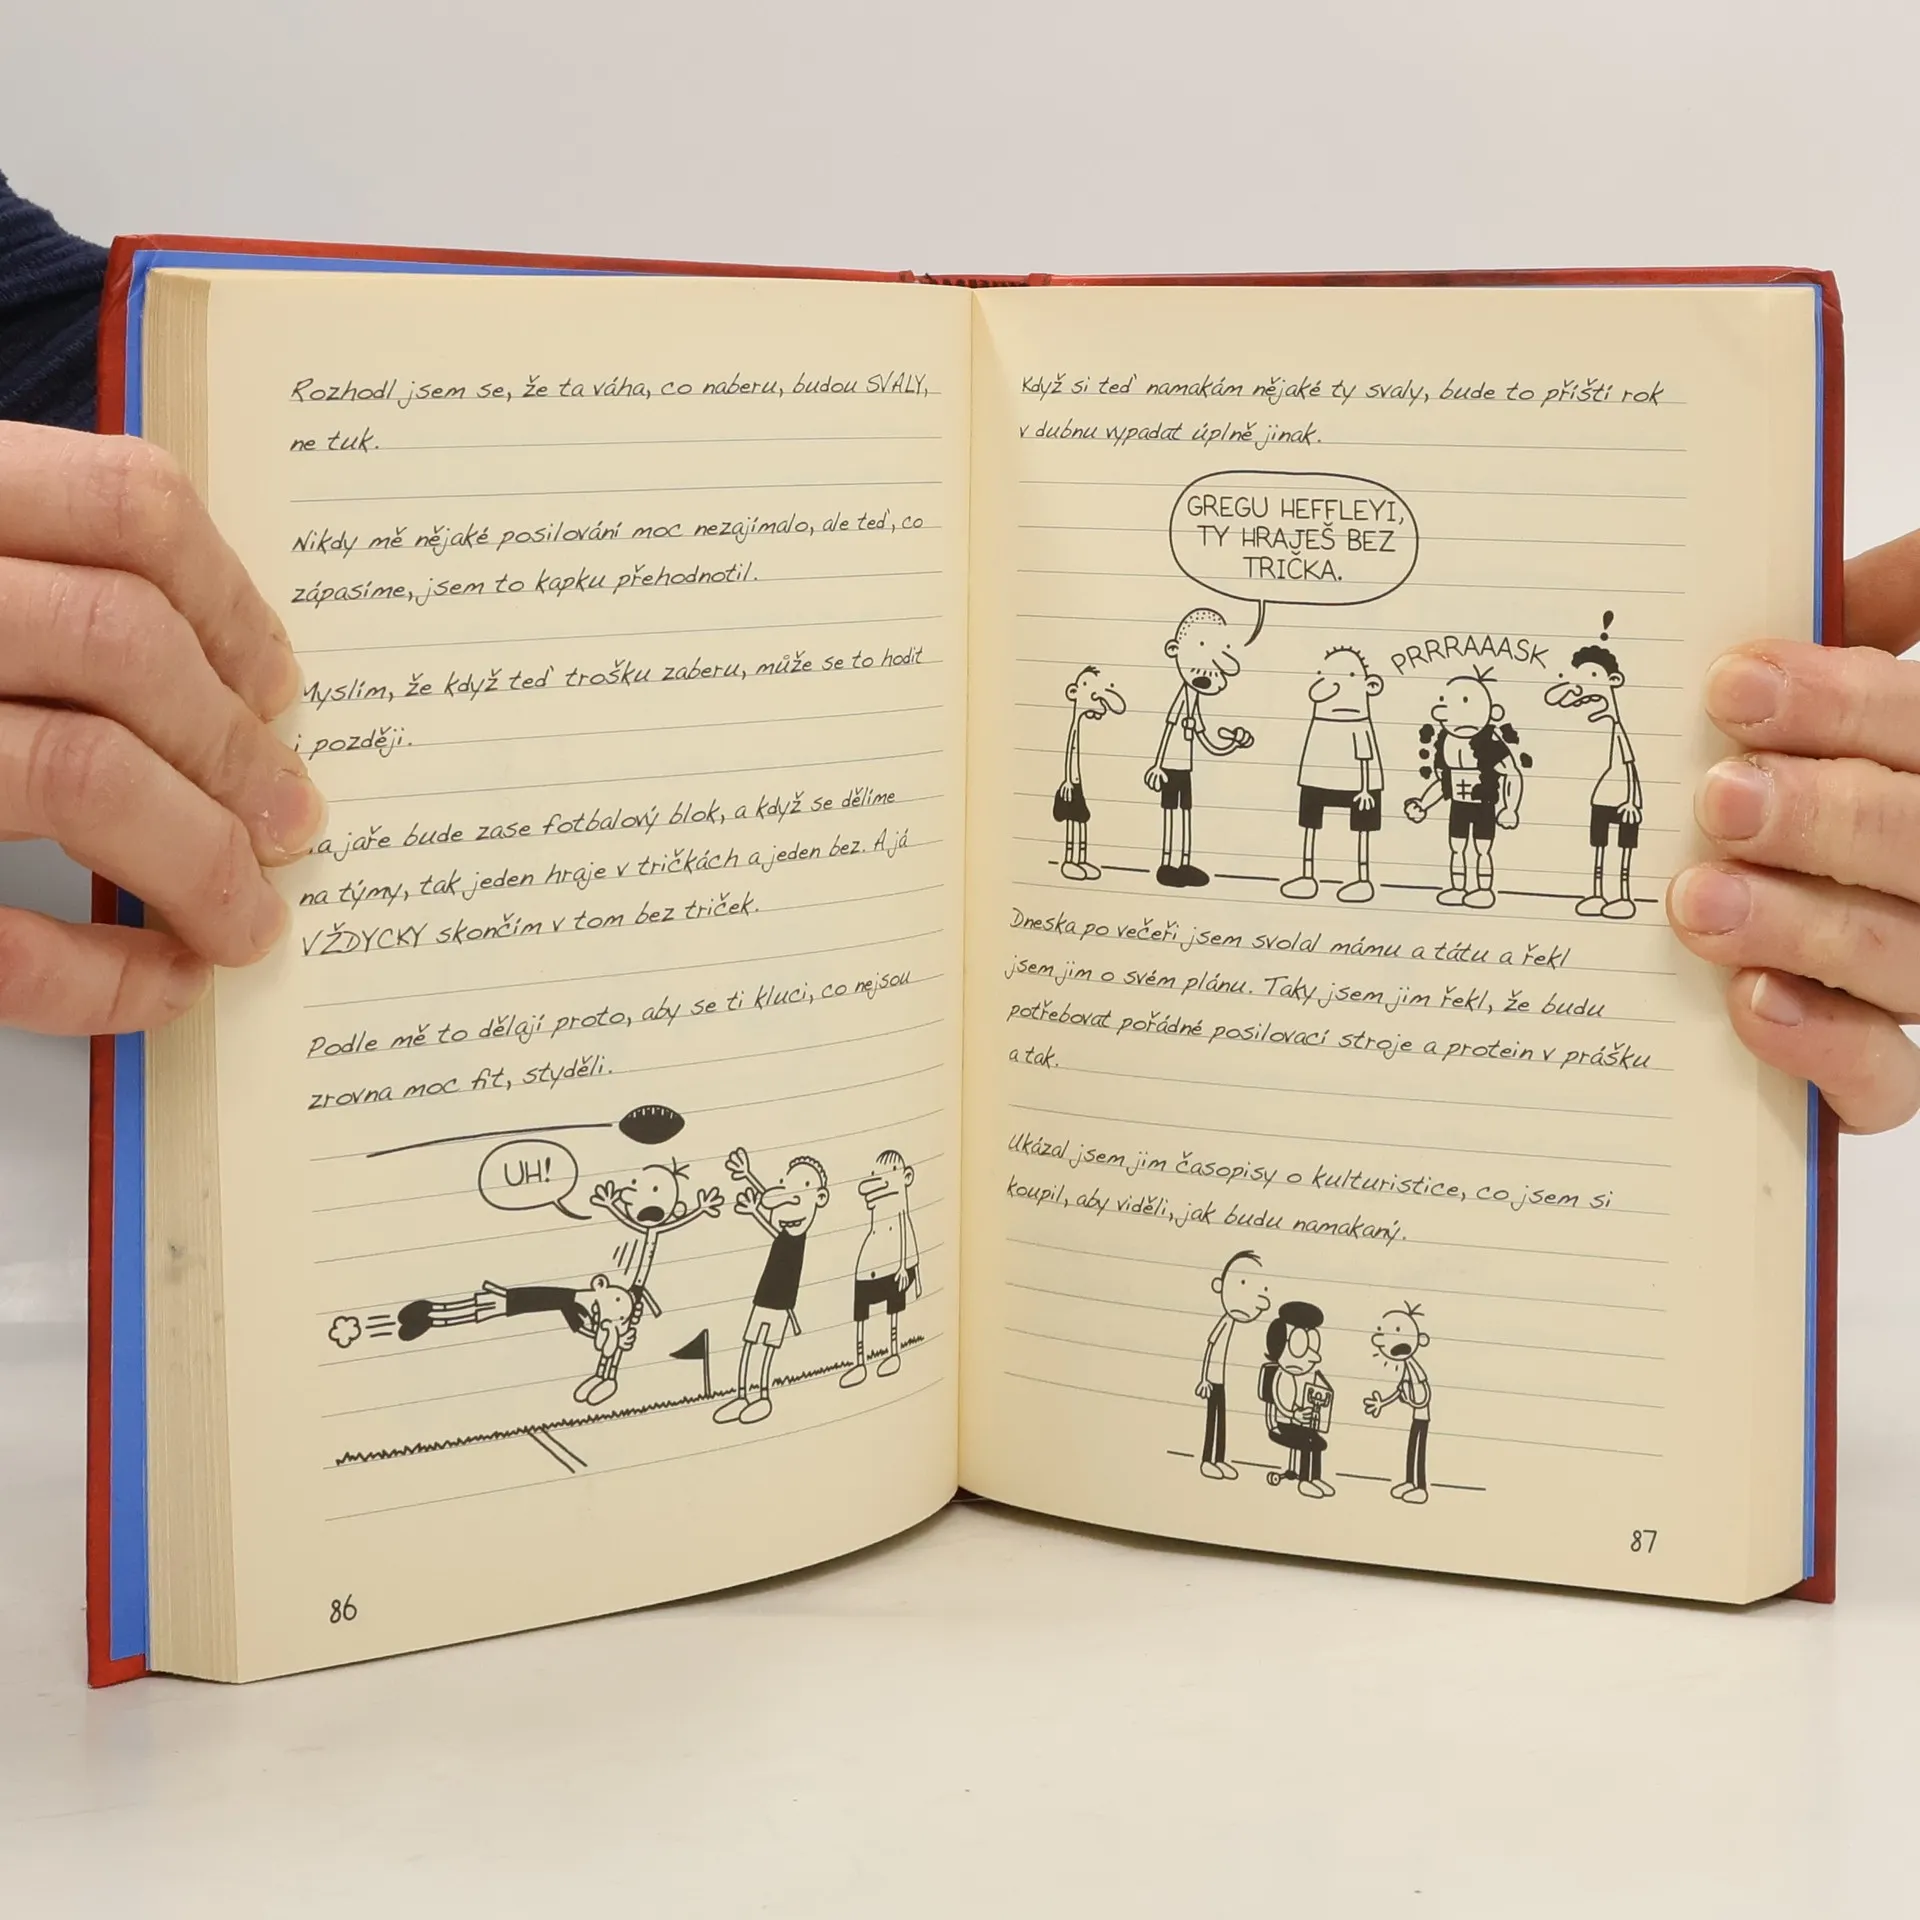 Rozhodl jsem se, že ta váha, co naberu, budou SVALY,
ne tuk.
Nikdy mě nějaké posilování moc nezajímalo, ale teď, co
zápasíme, jsem to kapku přehodnotil.
Myslím, že když teď trošku zaberu, může se to hodit
i později.
a jaře bude zase fotbalový blok, a když se dělíme
na týmy, tak jeden hraje v tričkách a jeden bez. A já
VŽDYCKY skončím v tom bez triček.
Podle mě to dělají proto, aby se ti kluci, co nejsou
zrovna moc fit, styděli.
UH!
86
Když si teď namakám nějaké ty svaly, bude to příští rok
v dubnu vypadat úplně jinak.
GREGU HEFFLEYI,
TY HRAJEŠ BEZ
TRIČKA.
PRRRAAASK
!
Dneska po večeři jsem svolal mámu a tátu a řekl
jsem jim o svém plánu. Taky jsem jim řekl, že budu
potřebovat pořádné posilovací stroje a protein v prášku
a tak.
Ukázal jsem jim časopisy o kulturistice, co jsem si
koupil, aby viděli, jak budu namakaný.
87